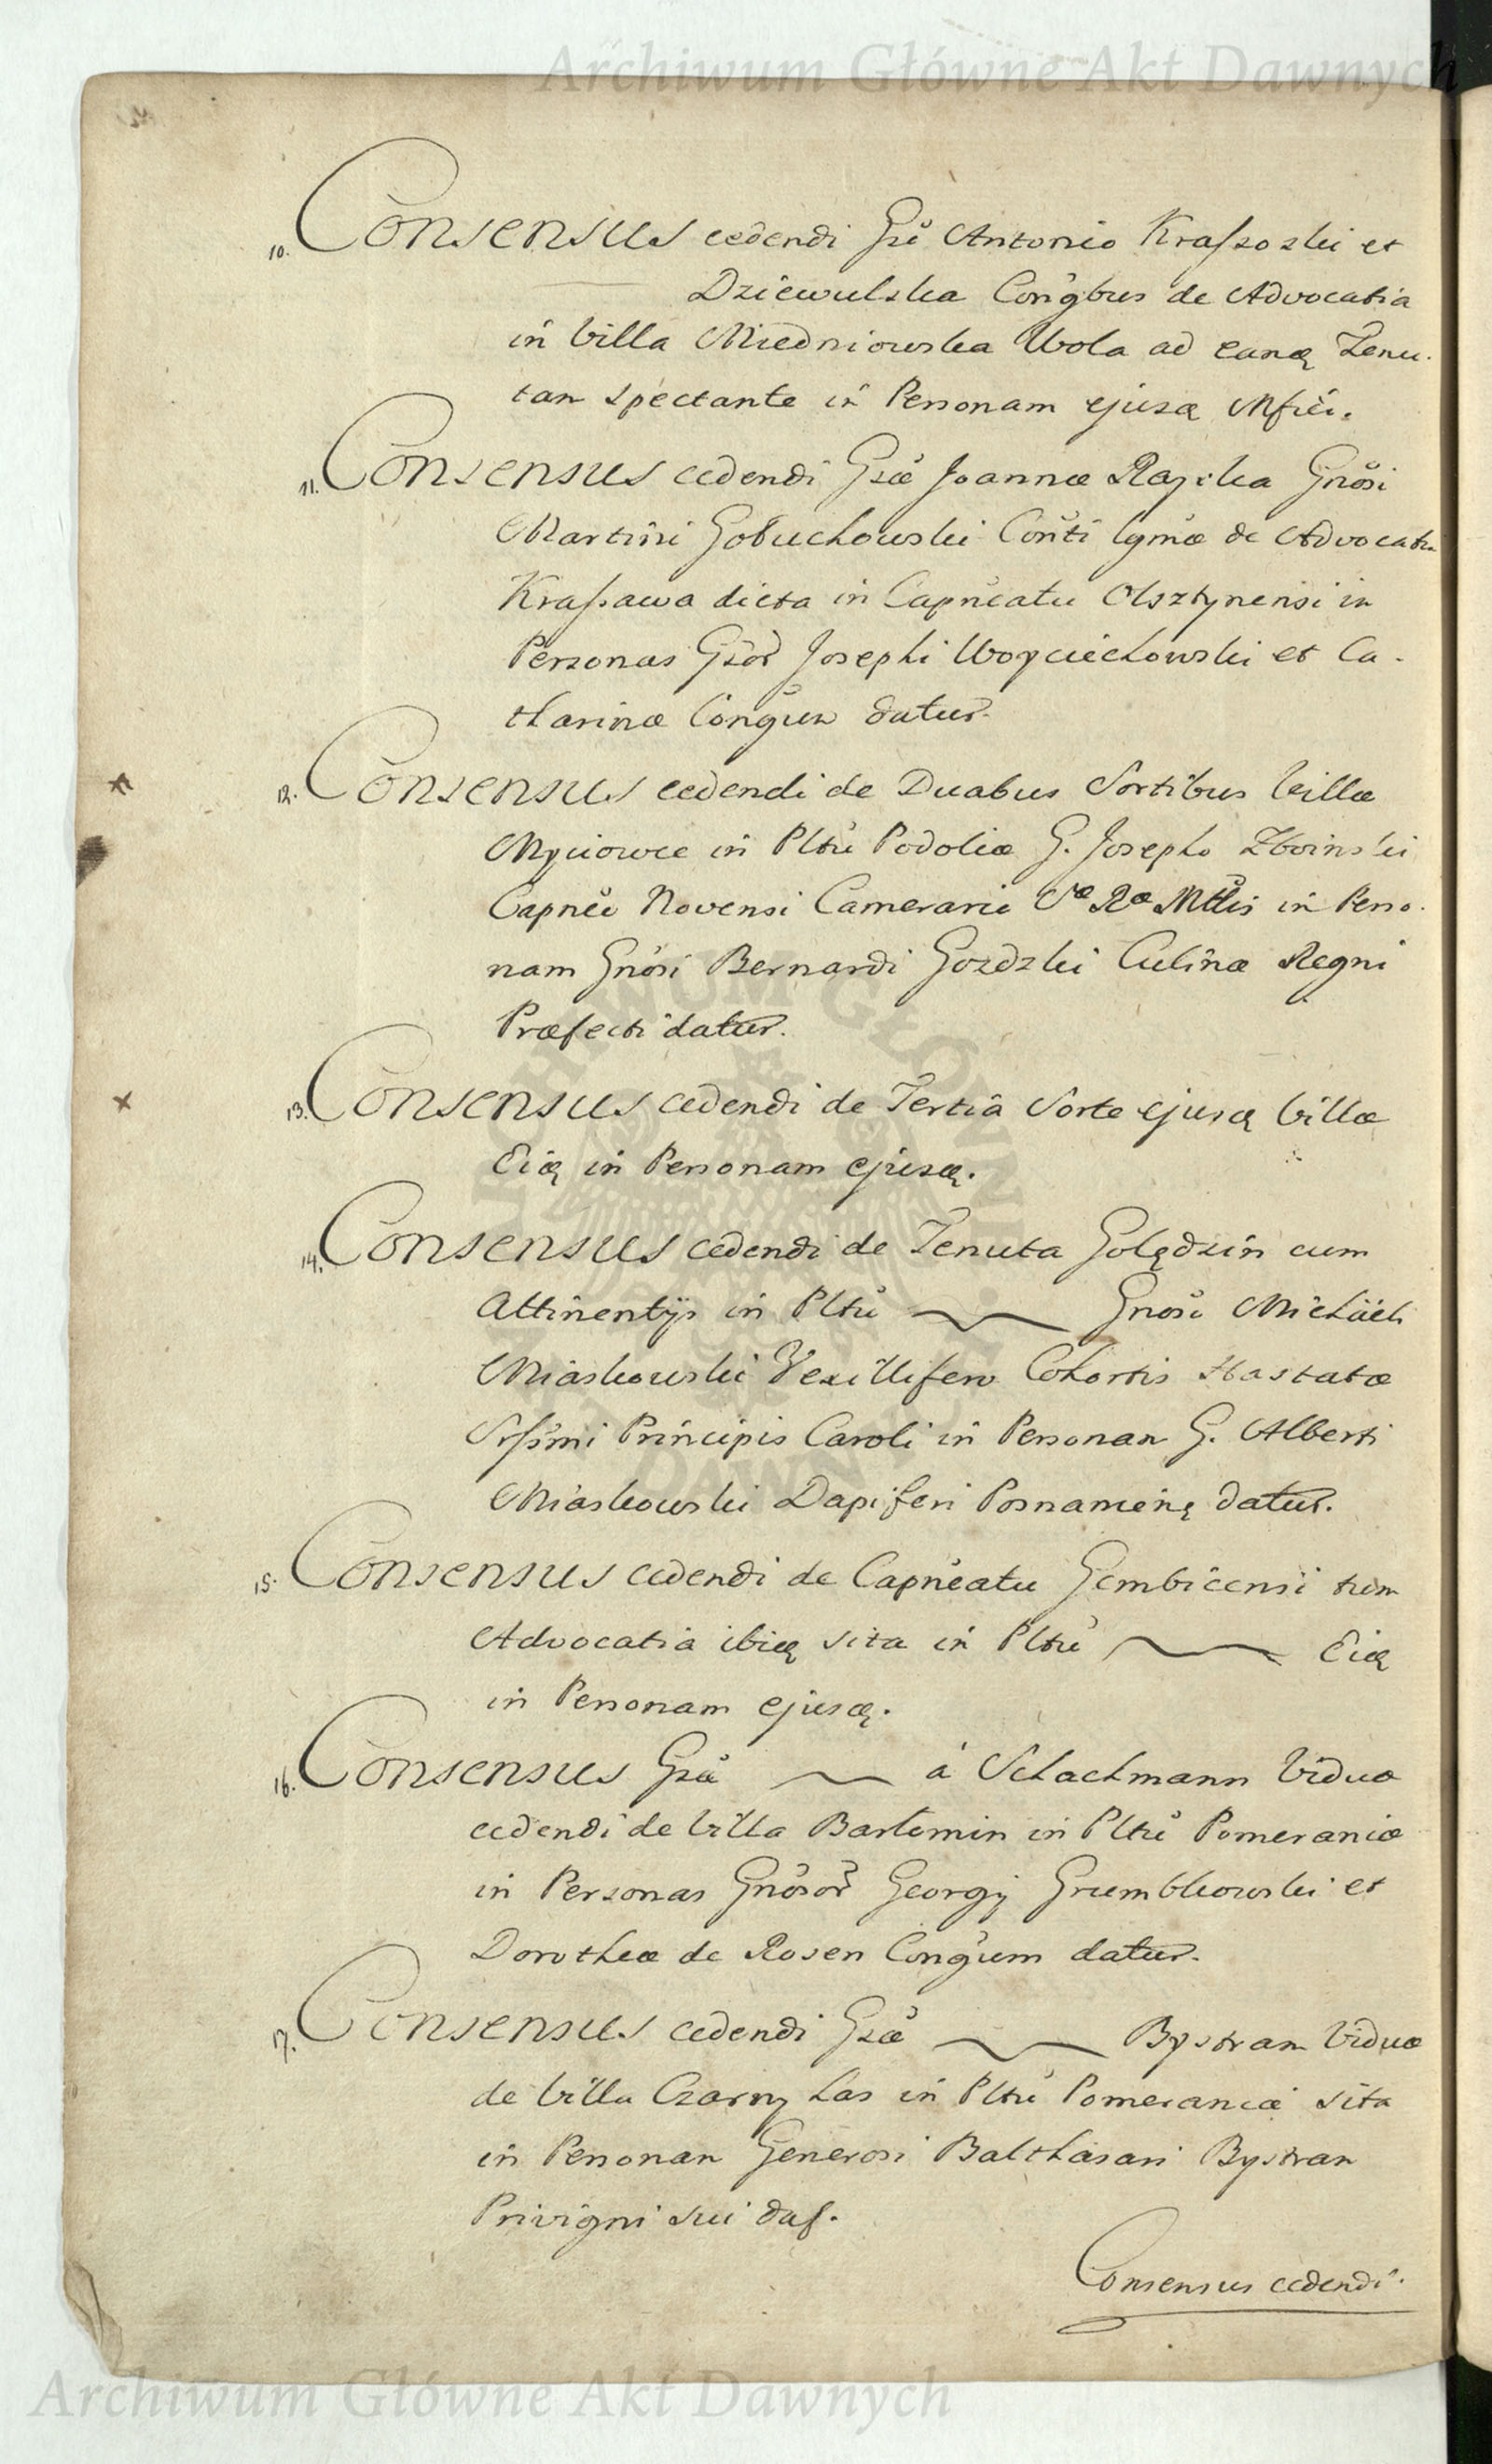 Archiwum Główne Akt Dawnych
10. Consensus cedendi Gso Antonio Kraſzoski et
Dziewulska Congbus de Advocatia
in Villa Miedniowska Wola ad eandę Tenu-
tam spectante in Personam ejusdę
11. Consensus cedendi Gsæ Joannæ Gnosi
Martini Gołuchowski Conti lgmæ de Advocatia
Kraſsawa dicta in Capneatu Olsztynensi in
Personas Gsor Josephi Woyciechowski et Ca-
tharinæ Congum datur.
12. Consensus cedendi de Duabus Sortibus Villæ
Myciowce in Pltu Podoliæ G. Josepho Zboinski
Capneo Novensi Camerario Sæ Ræ Mttis in Perso-
nam Gnosi Bernardi Gozdzki Culinæ Regni
Præfecti datur.
13. Consensus cedendi de Tertia Sorte ejusdę Villæ
Eidę in Personam ejusdę.
14. Consensus cedendi de Tenuta Golędzin cum
Attinentÿs in Pltu Gnoso Michaeli
Miaskowski Vexillifero Cohortis Hastatæ
Srſsmi Principis Caroli in Personam G. Alberti
Miaskowski Dapiferi Posnaniensę datur.
15. Consensus cedendi de Capneatu Gembicensi tum
Advocatia ibidę sita in Pltu Eidę
in Personam ejusdę.
16. Consensus Gsæ á Schachmann Viduæ
cedendi de Villa Bartomin in Pltu Pomeraniæ
in Personas Gnosor Georgÿ Grumbkowski et
Dorotheæ de Rosen Congum datur.
17. Consensus cedendi Gsæ Bystram Viduæ
de Villa Czarny Las in Pltu Pomeraniæ sita
in Personam Generosi Balthasari Bystram
Privigni sui daſ.
Consensus cedendi.
Archiwum Główne Akt Dawnych